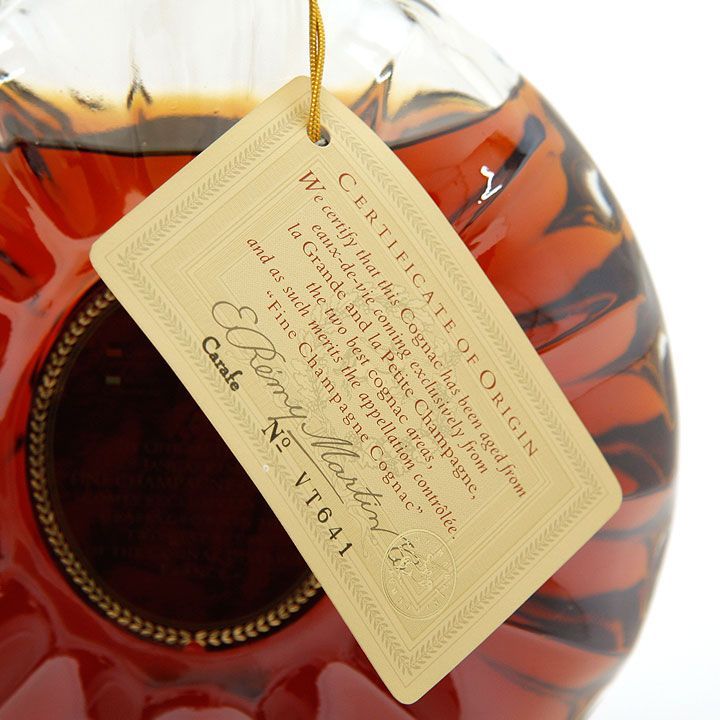 CERTIFICATE OF ORIGIN
We certify that this Cognac has been aged from
eaux-de-vie coming exclusively from
la Grande and la Petite Champagne,
the two best cognac areas,
and as such merits the appellation contrôlée.
"Fine Champagne Cognac"
E Rémy Martin
Carafe Nº VT641